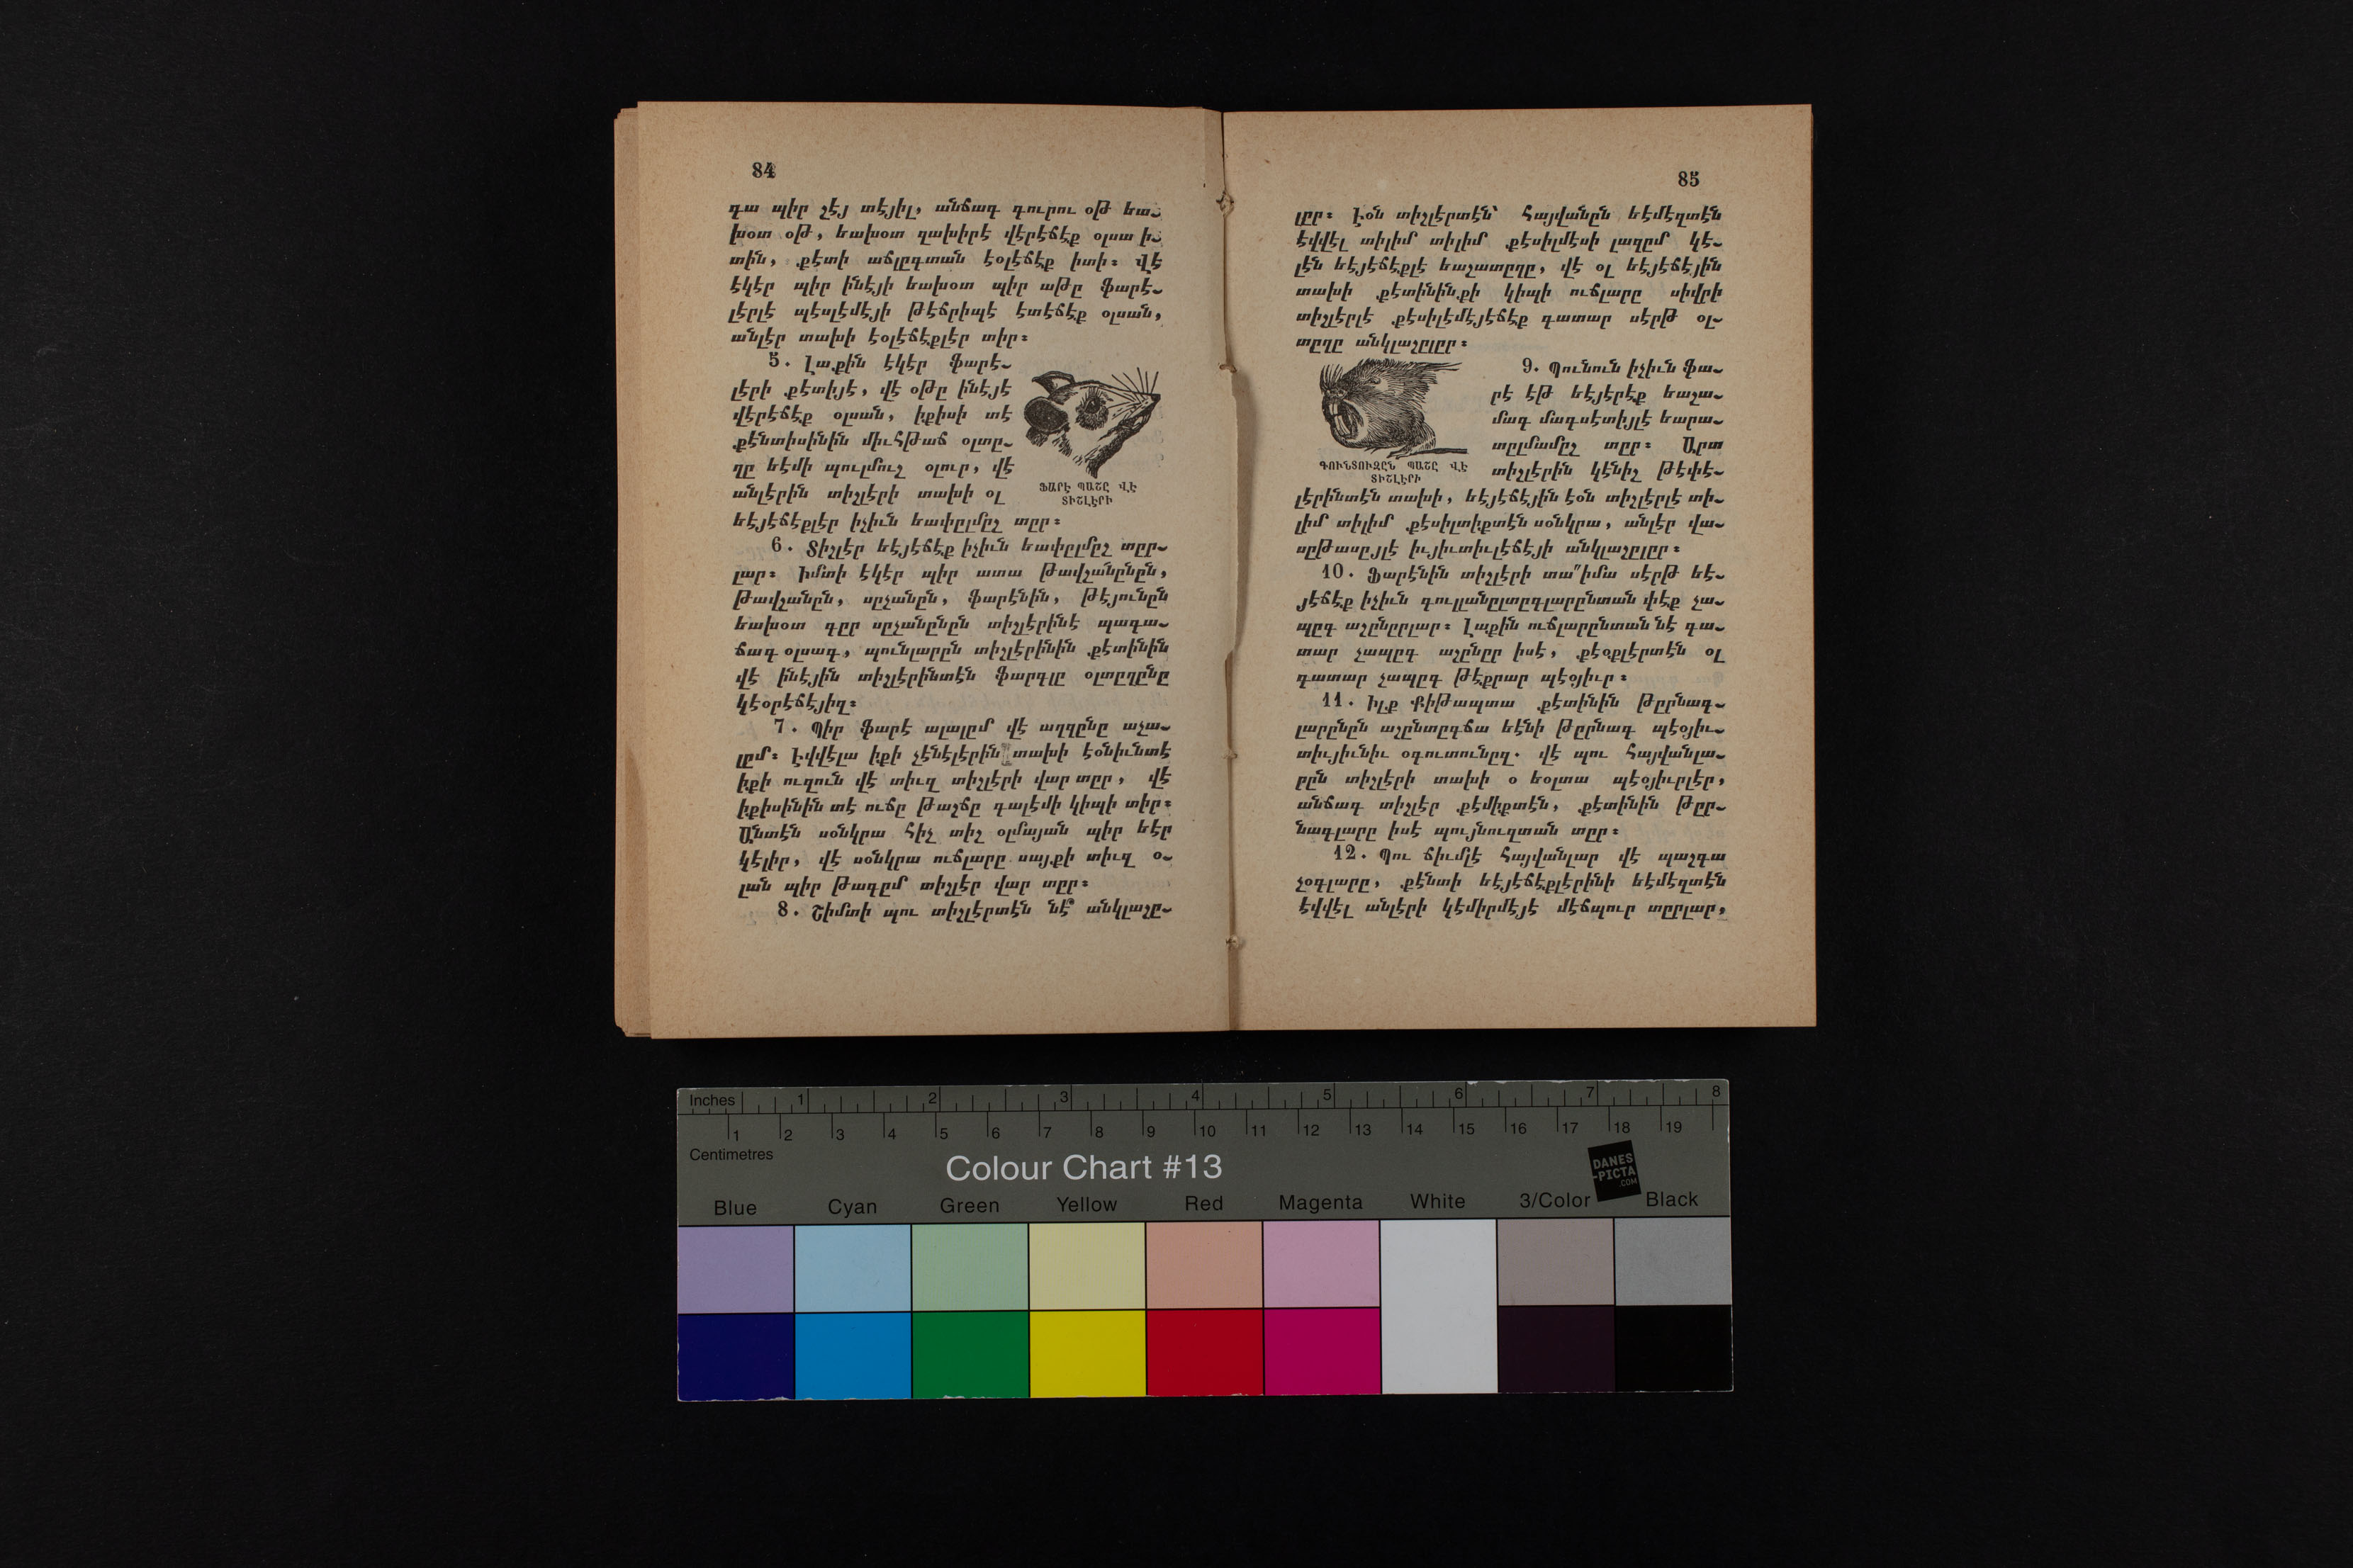 84
գա պիր չէյ տէյիլ, անճագ գուրու օթ եա֊
խօտ օթ, եախօտ զախիրէ վէրէճէք օլսա ի֊
տին, քէտի աճլըգտան էօլէճէք իտի։ Վէ
էկէր պիր ինէյի եախօտ պիր աթը ֆարէ֊
լէրլէ պէսլէմէյի թէճրիպէ էտէճէք օլսան,
անլէր տախի էօլէճէքլէր տիր։
5. Լաքին էկէր ֆարէ֊
լէրի քէտիյէ, վէ օթը ինէյէ
վէրէճէք օլսան, իքիսի տէ
քէնտիսինին միւհթաճ օլտը֊
ղը եէմի պուլմուշ օլուր, վէ
անլէրին տիշլէրի տախի օլ
եէյէճէքլէր իչիւն եափըլմըշ տըր։
ՖԱՐԷ ՊԱՇԸ ՎԷ
ՏԻՇԼԷՐԻ
6. Տիշլէր եէյէճէք իչիւն եափըլմըշ տըր֊
լար։ Իմտի էկէր պիր ատա թավշանընըն,
թավշանըն, սըչանըն, ֆարէնին, թէյունըն
եախօտ գըր սըչանընըն տիշլէրինէ պագա֊
ճագ օլսագ, պունլարըն տիշլէրինին քէտինին
վէ ինէյին տիշլէրինտէն ֆարգլը օլտըղընը
կէօրէճէյիզ։
7. Պիր ֆարէ ալալըմ վէ աղզընը աչա֊
լըմ։ Էվվէլա իքի չէնէլէրին տախի էօնիւնտէ
իքի ուզուն վէ տիւզ տիշլէրի վար տըր, վէ
իքիսինին տէ ուճը թաշճը գալէմի կիպի տիր։
Անտէն սօնկրա հիչ տիշ օլմայան պիր եէր
կէլիր, վէ սօնկրա ուճլարը սայքի տիւզ օ֊
լան պիր թագըմ տիշլէր վար տըր։
8. Շիմտի պու տիշլէրտէն նէ՞ անկլաշը֊
85
լըր։ Էօն տիշլէրտէն՝ հայվանըն եէմէզտէն
էվվէլ տիլիմ տիլիմ քէսիլմէսի լազըմ կէ֊
լէն եէյէճէքլէ եաշատըղը, վէ օլ եէյէճէյին
տախի քէտինինքի կիպի ուճլարը սիվրի
տիշլէրլէ քէսիլէմէյէճէք գատար սէրթ օլ֊
տըղը անկլաշըլըր։
ԳՈՒՆՏՈՒԶԸՆ ՊԱՇԸ ՎԷ
ՏԻՇԼԷՐԻ
9. Պունուն իչիւն ֆա֊
րէ էթ եէյէրէք եաշա֊
մագ մագսէտիյլէ եարա֊
տըլմամըշ տըր։ Արտ
տիշլէրին կէնիշ թէփէ֊
լէրինտէն տախի, եէյէճէյին էօն տիշլէրլէ տի֊
լիմ տիլիմ քէսիլտիքտէն սօնկրա, անլէր վա֊
սըթասըյլէ իւյիւտիւլէճէյի անկլաշըլըր։
10. Ֆարէնին տիշլէրի տա՞իմա սէրթ եէ֊
յէճէք իչիւն գուլլանըլտըգլարընտան փէք չա֊
պըգ աշընըրլար։ Լաքին ուճլարընտան նէ գա֊
տար չապըգ աշընըր իսէ, քէօքլէրտէն օլ
գատար չապըգ թէքրար պէօյիւր։
11. Իլք Քիթապտա քէտինին թըրնագ֊
լարընըն աշընտըգճա եէնի թըրնագ պէօյիւ֊
տիւյիւնիւ օգուտունըզ. վէ պու հայվանլա֊
րըն տիշլէրի տախի օ եօլտա պէօյիւրլէր,
անճագ տիշլէր քէմիքտէն, քէտինին թըր֊
նագլարը իսէ պույնուզտան տըր։
12. Պու ճիւմլէ հայվանլար վէ պաշգա
չօգլարը, քէնտի եէյէճէքլէրինի եէմէզտէն
էվվէլ անլէրի կէմիրմէյէ մէճպուր տըրլար,
Inches 1 2 3 4 5 6 7 8
1 2 3 4 5 6 7 8 9 10 11 12 13 14 15 16 17 18 19
Centimetres
Colour Chart #13
DANES
-PICTA
.COM
Blue Cyan Green Yellow Red Magenta White 3/Color Black